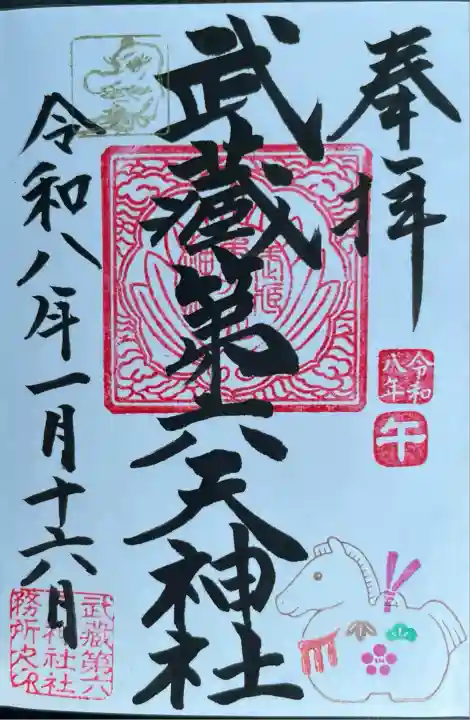 奉拝
令和
八年
午
武蔵第六天神社
令和八年一月十六日
武蔵第六
天神社社
務所之印